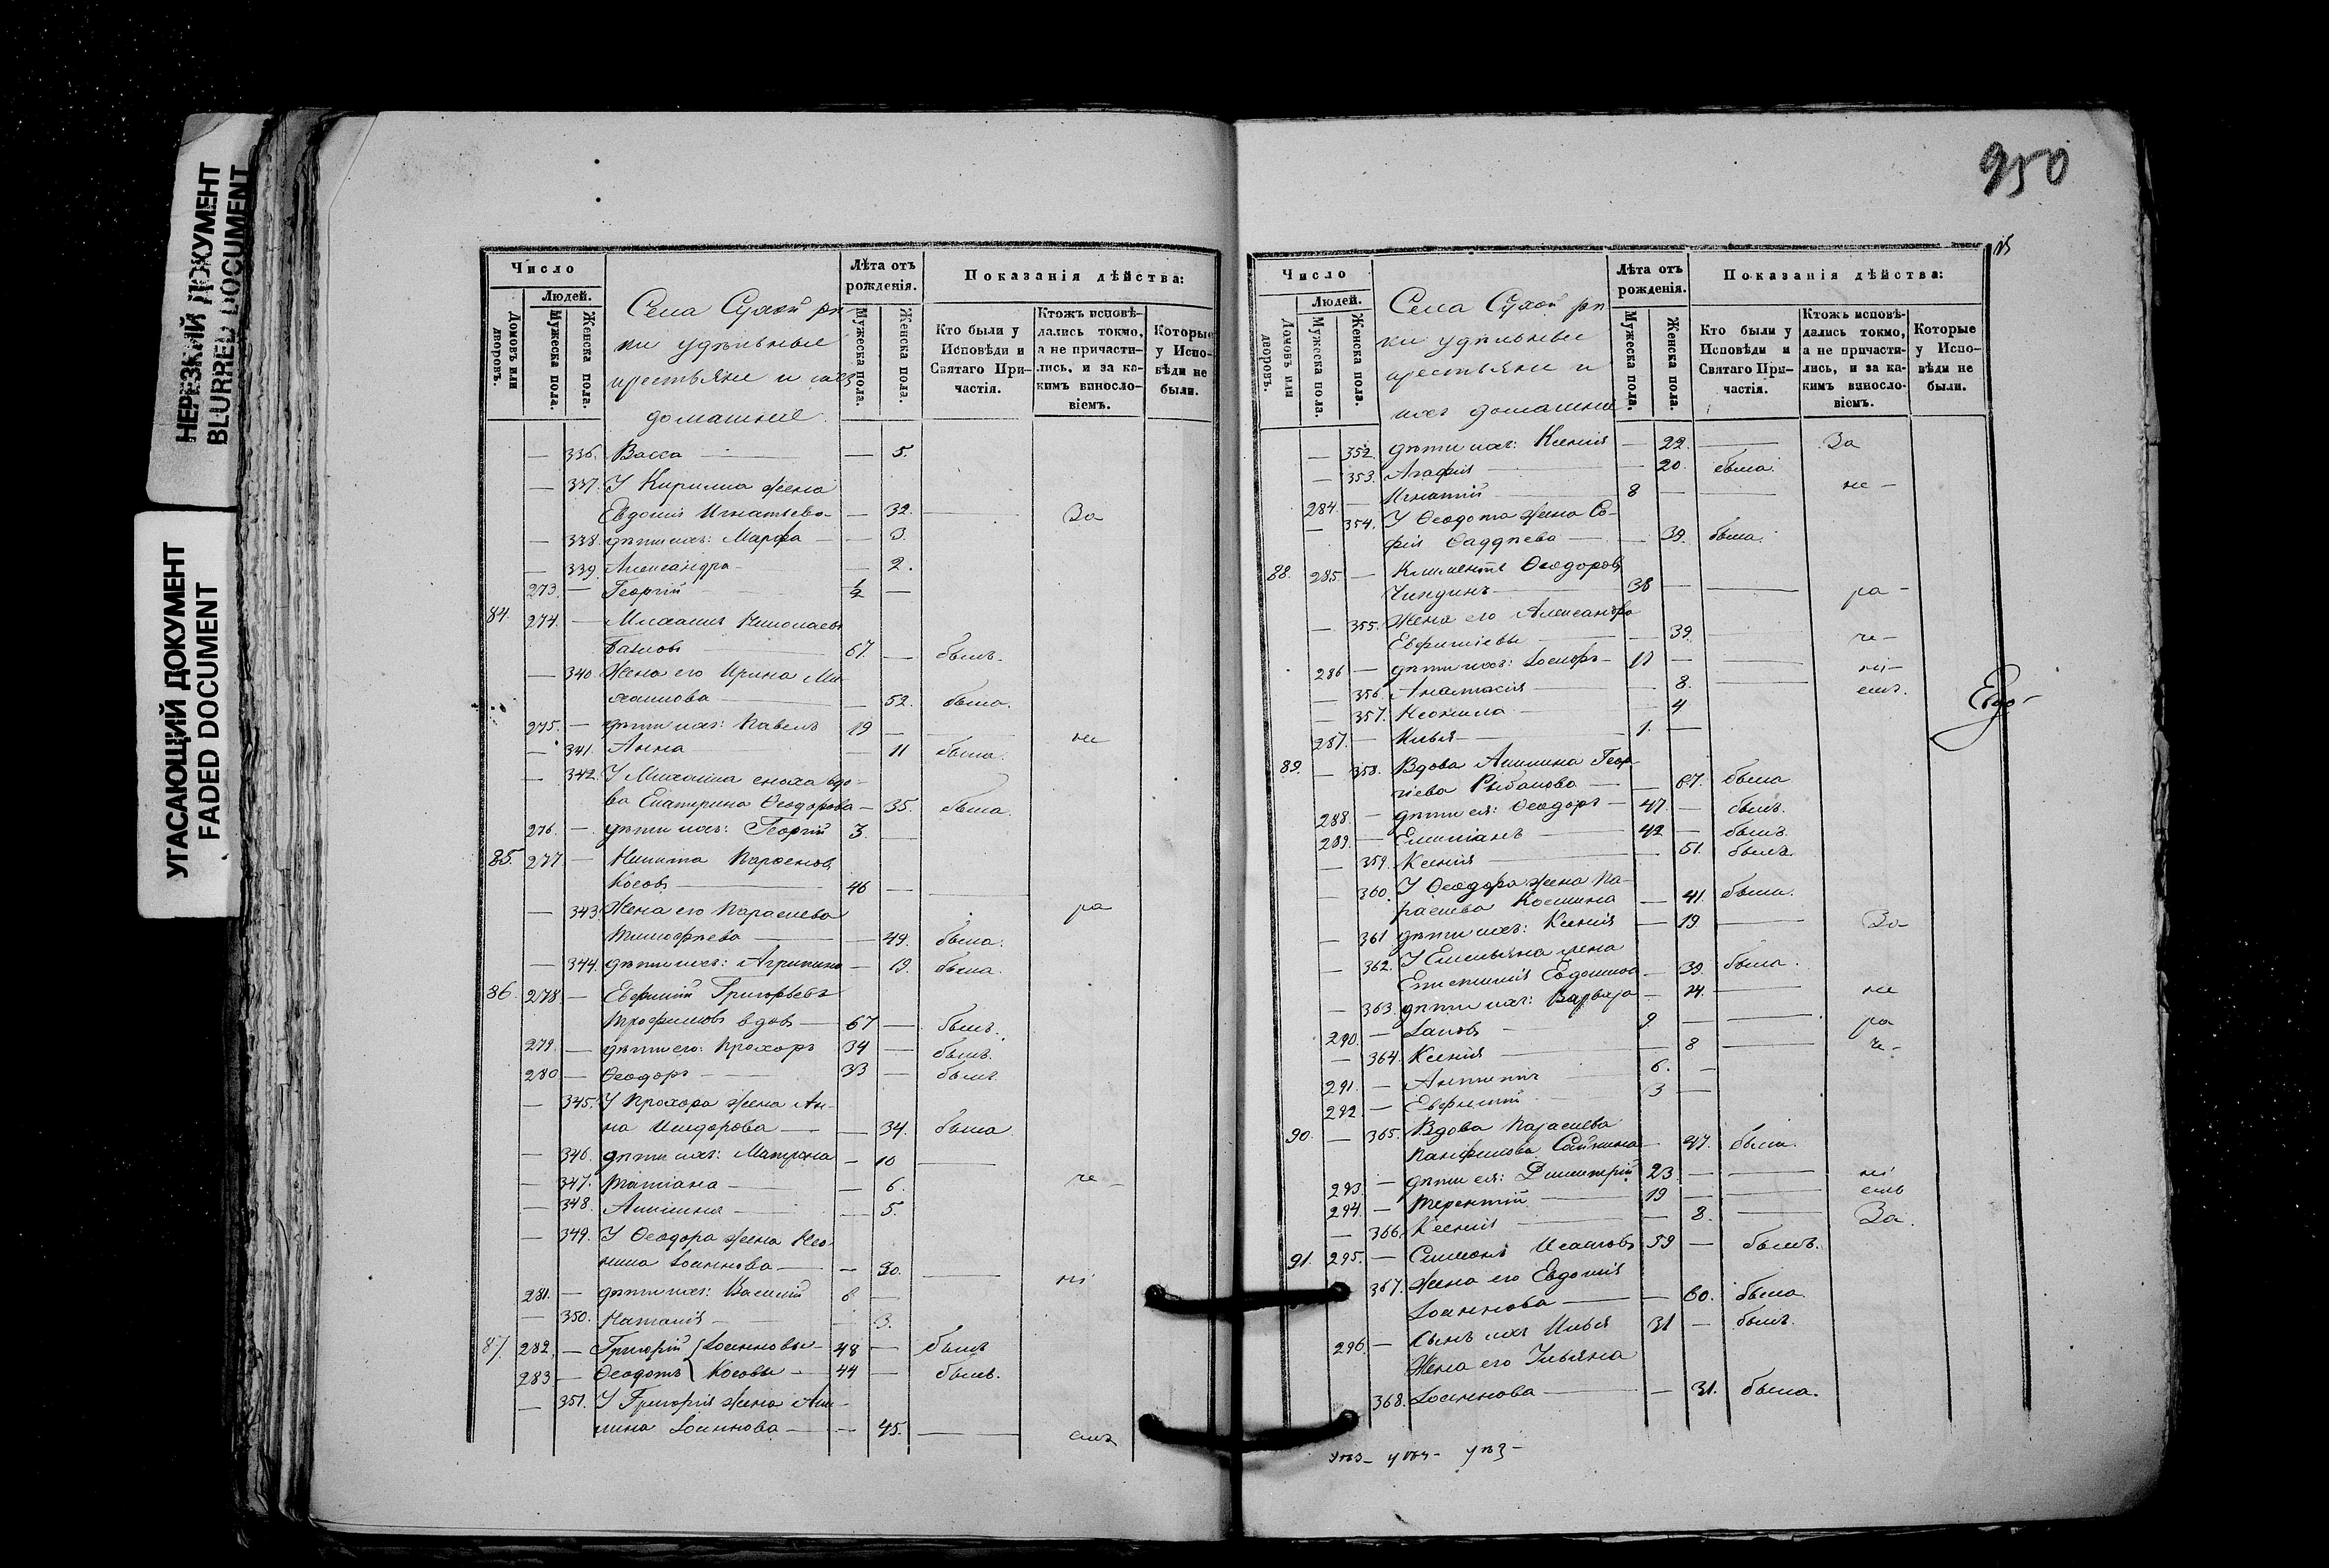 НЕРЕЗКИЙ ДОКУМЕНТ
BLURRED DOCUMENT
УГАСАЮЩИЙ ДОКУМЕНТ
FADED DOCUMENT
Число
Людей.
Домовъ или дворовъ.
Мужеска пола.
Женска пола.
Села Сухой рѣ-
ки удѣльные
крестьяне и ихъ
домашніе.
Лѣта отъ рожденія.
Мужеска пола.
Женска пола.
Показанія дѣйства:
Кто были у Исповѣди и Святаго Причастія.
Ктожъ исповѣдались токмо, а не причастились, и за какимъ винословіемъ.
Которые у Исповѣди не были.
— 336. Васса — — 5.
— 337. У Кирилла жена
Евдокія Игнатьева — 32. — За
— 338. дѣти ихъ: Марфа — — 3.
— 339. Александра — — 2.
273. — Георгій — ½ —
84. 274. — Михаилъ Николаевъ
67. — былъ.
— 340. Жена его Ирина Ми
хаилова — — 52. была.
275. — дѣти ихъ: Павелъ 19 — — не
— 341. Анна — 11 была.
— 342. У Михаила сноха вдо-
ва Екатерина Ѳеодорова — 35. была.
276. — дѣти ихъ: Георгій 3. —
85. 277 — Никита Парѳеновъ
Косовъ — 46 — —
— 343. Жена его Параскева ра
Тимофѣева — — 49. была.
— 344. дѣти ихъ: Агрипина — 19. была.
86. 278 — Евфимій Григорьевъ
Трофимовъ вдовъ — 67 — былъ.
279. — дѣти его: Прохоръ 34 — былъ.
280 — Ѳеодоръ — 33 — былъ.
— 345. У Прохора жена Ан-
на Исидорова — — 34. была
— 346. дѣти ихъ: Матрона — 10 —
— 347. Татіана — — 6. че-
— 348. Акилина — — 5.
— 349. У Ѳеодора жена Нео-
нила Іоаннова — — 30. — ні
281. — дѣти ихъ: Василій 6 —
— 350. Наталія — 3.
87. 282. — Григорій } Іоанновы — 48 — былъ
283 — Ѳеодотъ } Косовы — 44 — былъ.
— 351. У Григорія жена Аки-
лина Іоаннова — — 45. — емъ
950
Число
Людей.
Домовъ или дворовъ.
Мужеска пола.
Женска пола.
Села Сухой рѣ
ки удѣльные
крестьяне и
ихъ домашніе
Лѣта отъ рожденія.
Мужеска пола.
Женска пола.
Показанія дѣйства:
Кто были у Исповѣди и Святаго Причастія.
Ктожъ исповѣдались токмо, а не причастились, и за какимъ винословіемъ.
Которые у Исповѣди не были.
— 352. дѣти ихъ: Ксенія — 22. — За
— 353. Агафія — — 20. была.
284. — Игнатій 8 — — не-
— 354. У Ѳеодота жена Со-
фія Ѳаддѣева — — 39. была.
88. 285. — Климентъ Ѳеодоровъ
38 — — ра-
— 355. Жена его Александра
Евфиміева — — 39. — че-
286 — дѣти ихъ: Іосифъ — 11 — — ні-
— 356. Анастасія — 8. — емъ.
— 357. Неонила — 4
287. — Илья — 1. —
89. — 358. Вдова Акилина Геор-
гіева Рыбакова — — 67. была
288. — дѣти ея: Ѳеодоръ — 47. — былъ.
289. — Емиліанъ — 42 — былъ.
— 359. Ксенія — — 51.
— 360. У Ѳеодора жена Па-
раскева Космина — 41. была.
— 361 дѣти ихъ: Ксенія — 19. — За-
— 362. У Емельяна жена
Евдокимова — 39. была.
— 363. дѣти ихъ: Варвара — 14. — не
290. — Іаковъ — 9. — — ра
— 364. Ксенія — — 8 — че-
291. — Антипъ — 6. —
292. — Евфимій 3 —
90. — 365. Вдова Параскева
Панфилова — 47. была.
293. — дѣти ея: Димитрій 23. — — ні
294. — Терентій — 19 — — емъ
— 366. Ксенія — — 8. — За.
91. 295. — Симеонъ Исааковъ 59 — былъ.
— 367. Жена его Евдокія
Іоаннова — — 60. была.
296. — Сынъ ихъ Илья 31 — былъ.
Жена его Ульяна
368. Іоаннова — — 31. была.